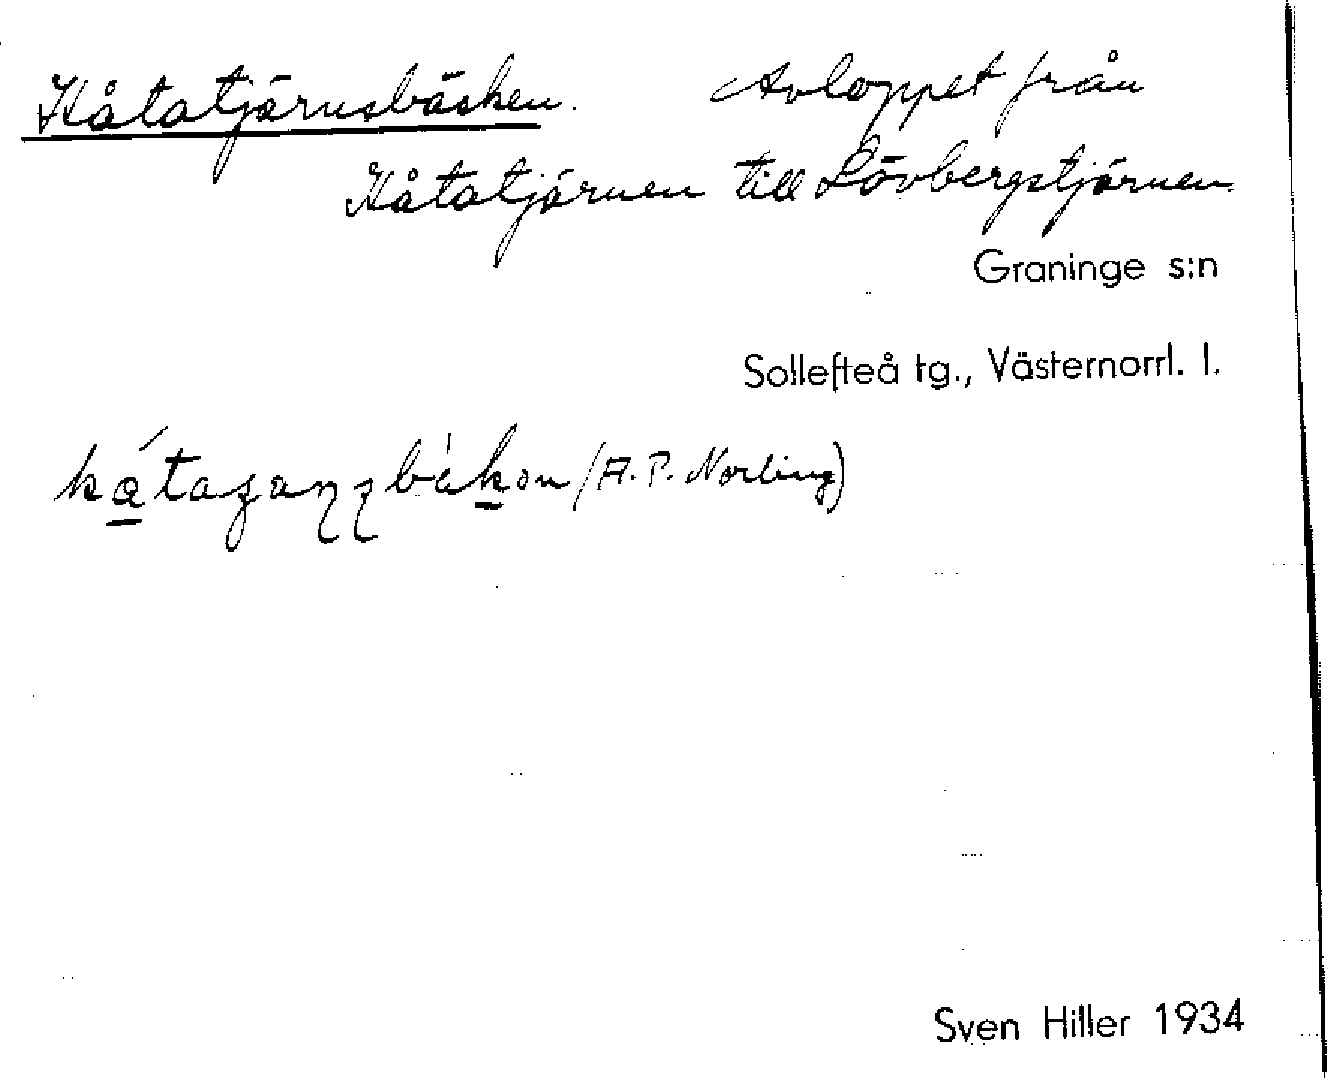 Kåtatjärnsbäcken. Avloppet från
Kåtatjärnen till Lövbergstjärnen.
Graninge s:n
Sollefteå tg., Västernorrl. l.
(A. P. Norling)
Sven Hiller 1934